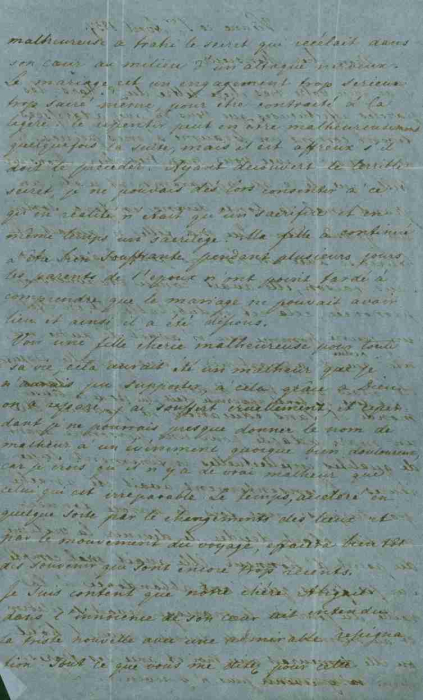 malheureuse a trahi le secret que recélait dans
son cœur au milieu d'un attaque nerveux.
Le mariage est un engagement trop serieux
trop sacré même pour être contracté à la
légère: le repentir peut en être malheureusement
quelquefois la suite, mais il est affreux s'il
doit le précéder. Ayant découvert le terrible
secret je ne pouvais dès lors consentir à ce
qui en realité n'était qu'un sacrifice et en
même temps un sacrilège. Ma fille a continué
a être bien souffrante pendant plusieurs jours
les parents de l'epoux n'ont point tardé à
comprendre que le mariage ne pouvait avoir
lieu et ainsi il a été
Voir une fille cherie malheureuse pour toute
sa vie, cela aurait été un malheur que je
n'aurais pu supporter, à cela, grâce à Dieu
on a j'ai souffert cruellement, et cepen
dant je ne pourrais presque donner le nom de
malheur à un évènement quoique bien douloureux
car je crois qu'il n'y a de vrai malheur que
celui qui est irreparable. Le temps, accéléré en
quelque sorte par le changements des lieux et
par le mouvement du voyage, bientôt
des souvenir qui sont encore trop récents.
Je suis content que notre chère
dans l'innocence de son cœur ait entendu
la triste nouvelle avec une admirable resigna
tion. Tout ce que vous me dites pour cette